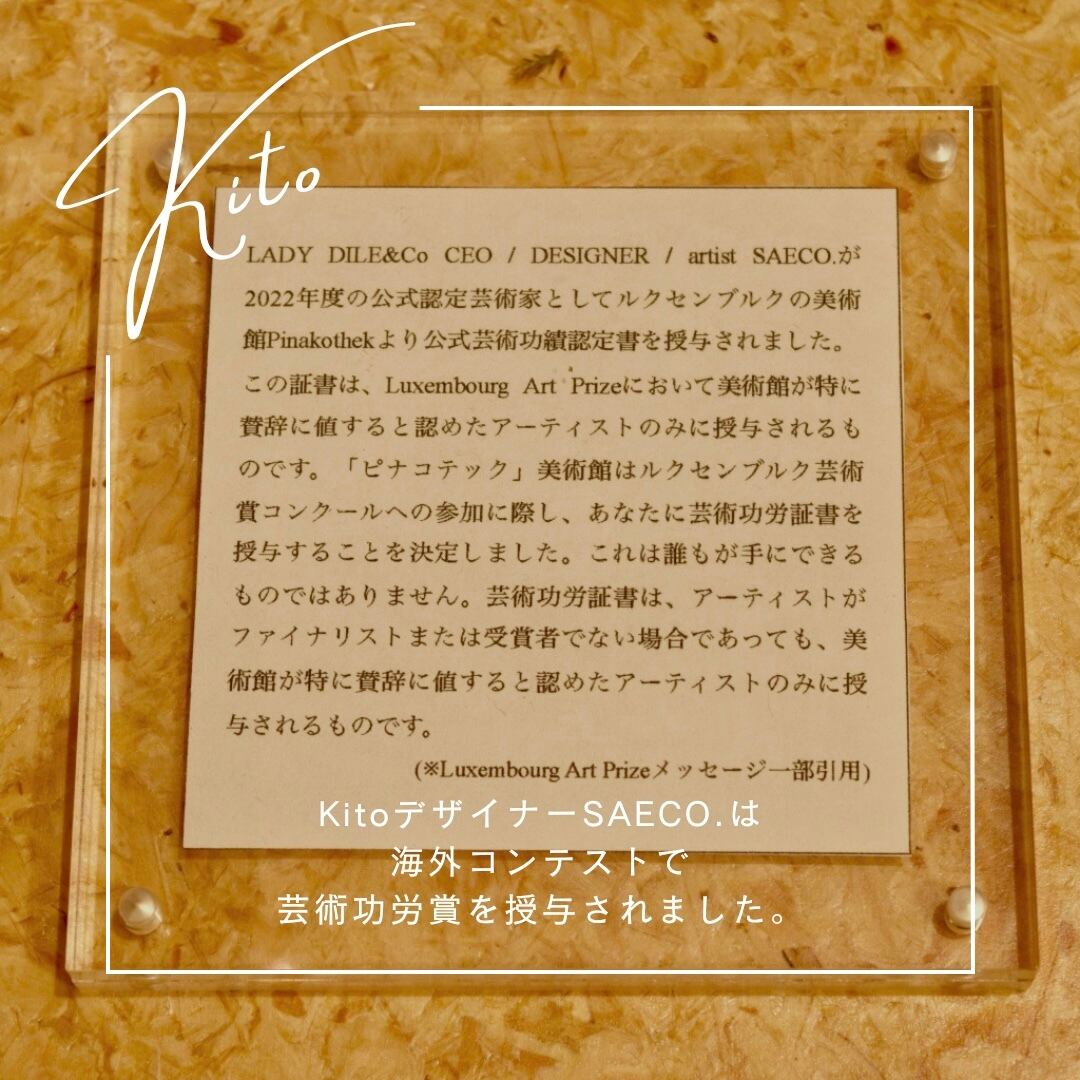 Kito
LADY DILE&Co CEO / DESIGNER / artist SAECO.が
2022年度の公式認定芸術家としてルクセンブルクの美術
館Pinakothekより公式芸術功績認定書を授与されました。
この証書は、Luxembourg Art Prizeにおいて美術館が特に
賛辞に値すると認めたアーティストのみに授与されるも
のです。「ピナコテック」美術館はルクセンブルク芸術
賞コンクールへの参加に際し、あなたに芸術功労証書を
授与することを決定しました。これは誰もが手にできる
ものではありません。芸術功労証書は、アーティストが
ファイナリストまたは受賞者でない場合であっても、美
術館が特に賛辞に値すると認めたアーティストのみに授
与されるものです。
(※Luxembourg Art Prizeメッセージ一部引用)
KitoデザイナーSAECO.は
海外コンテストで
芸術功労賞を授与されました。